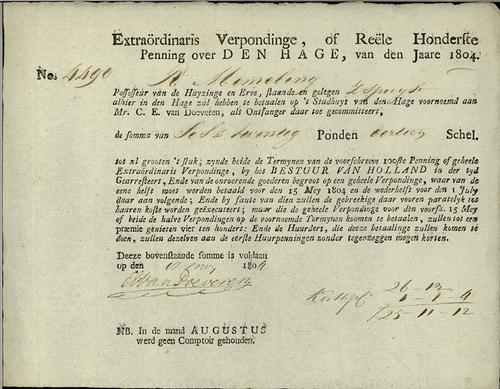 Extraördinaris Verpondinge, of Reële Honderste
Penning over DEN HAGE, van den Jaare 1804.
No. 4490
Possesseur van de Huyzinge en Erve, staande en gelegen
alhier in den Hage zal hebben te betaalen op 't Stadhuys van den Hage voornoemd aan
Mr. C. E. van Doeveren, als Ontfanger daar toe gecommitteert,
de somma van Ses twintig Ponden dertien Schel.
tot xl grooten 't stuk; zynde beide de Termynen van de voorschreeve 100ste Penning of geheele
Extraördinaris Verpondinge, by het BESTUUR VAN HOLLAND in der tyd
Gearresteert, Ende van de onroerende goederen begroot op een geheele Verpondinge, waar van de
eene helft moet worden betaald voor den 15 Mey 1804 en de wederhelft voor den 1 July
daar aan volgende; Ende by faute van dien zullen de gebreekige daar vooren paratelyk tot
haaren koste worden geëxecuteert; maar die de geheele Verpondinge voor den voorsz. 15 Mey
of beide de halve Verpondingen op de voornoemde Termynen koomen te betaalen, zullen tot een
præmie genieten vier ten honderd: Ende de Huurders, die deeze betaalinge zullen komen te
doen, zullen dezelven aan de eerste Huurpenningen zonder tegenzeggen mogen korten.
Deeze bovenstaande somme is voldaan
op den 1804
CE van Doeveren
26 - 13
Korting 1 - 1 - 4
25 - 11 - 12
NB. In de maand AUGUSTUS
werd geen Comptoir gehouden.